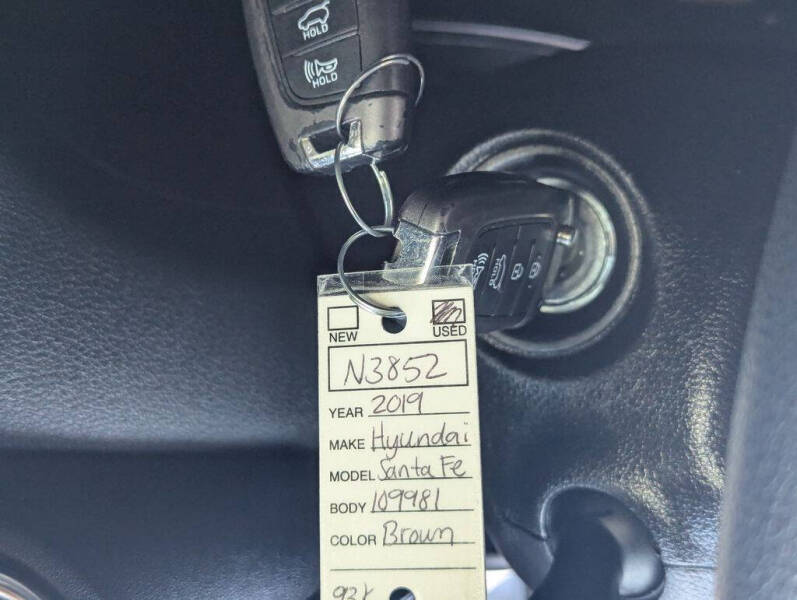 HOLD
HOLD
HOLD
NEW USED
N3852
YEAR 2019
MAKE Hyundai
MODEL Santa Fe
BODY 109981
COLOR Brown